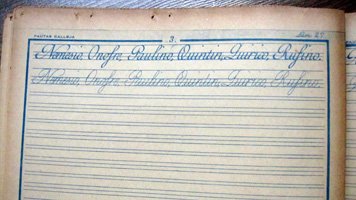 PAUTAS CALLEJA
3
Núm. 27
Nemesio, Onofre, Paulino, Quintín, Quirico, Rufino.
Nemesio, Onofre, Paulino, Quintín, Quirico, Rufino.